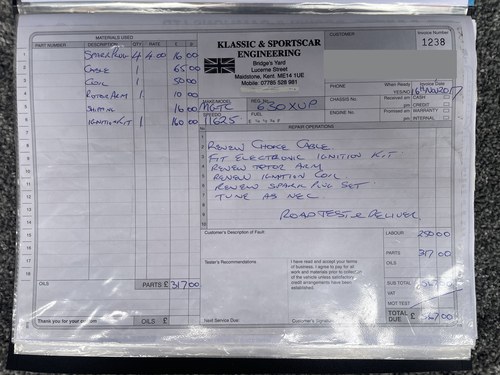 MATERIALS USED
PART NUMBER DESCRIPTION QTY RATE £ p
SPARK PLUG 4 4.00 16 00
CABLE 1 65 00
COIL 1 50 00
ROTOR ARM 1 10 00
16 00
IGNITION KIT 1 160 00
OILS PARTS £ 317 00
Thank you for your custom OILS £
KLASSIC & SPORTSCAR
ENGINEERING
Bridge's Yard
Lucerne Street
Maidstone, Kent ME14 1UE
Mobile: 07765 528 981
CUSTOMER
Invoice Number
1238
PHONE When Ready YES/NO Invoice Date
16 Nov 2017
MAKE/MODEL MGTC REG. No. 630XUP
CHASSIS No. Received am pm CASH CREDIT
SPEEDO 11625 FUEL
ENGINE No. Promised am pm WARRANTY INTERNAL
REPAIR OPERATIONS
RENEW CHOKE CABLE
FIT ELECTRONIC IGNITION KIT
RENEW ROTOR ARM
RENEW IGNITION COIL
RENEW SPARK PLUG SET
TUNE AS NEC
ROAD TEST & DELIVER
Customer's Description of Fault
Tester's Recommendations
I have read and accept your terms
of business. I agree to pay for all
work and materials prior to collection
of the vehicle unless satisfactory
credit arrangements have been
established.
Next Service Due Customer's Signature
LABOUR 250 00
PARTS 317 00
OILS
SUB TOTAL
VAT
MOT TEST
TOTAL DUE £ 567 00